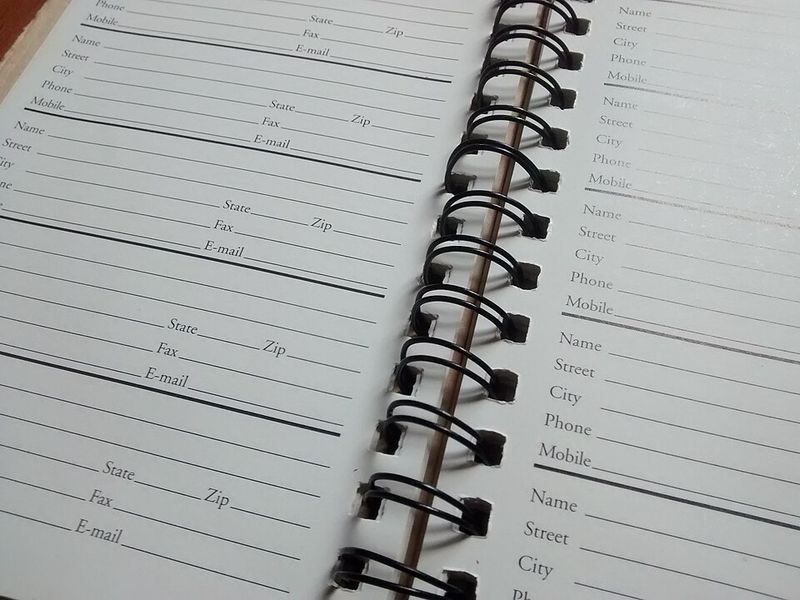 Phone State Zip
Mobile Fax
E-mail
Name
Street
City State Zip
Phone Fax
Mobile E-mail
Name
Street
State Zip
Fax
E-mail
State Zip
Fax
E-mail
State Zip
Fax
E-mail
Name
Street
City
Phone
Mobile
Name
Street
City
Phone
Mobile
Name
Street
City
Phone
Mobile
Name
Street
City
Phone
Mobile
Name
Street
City